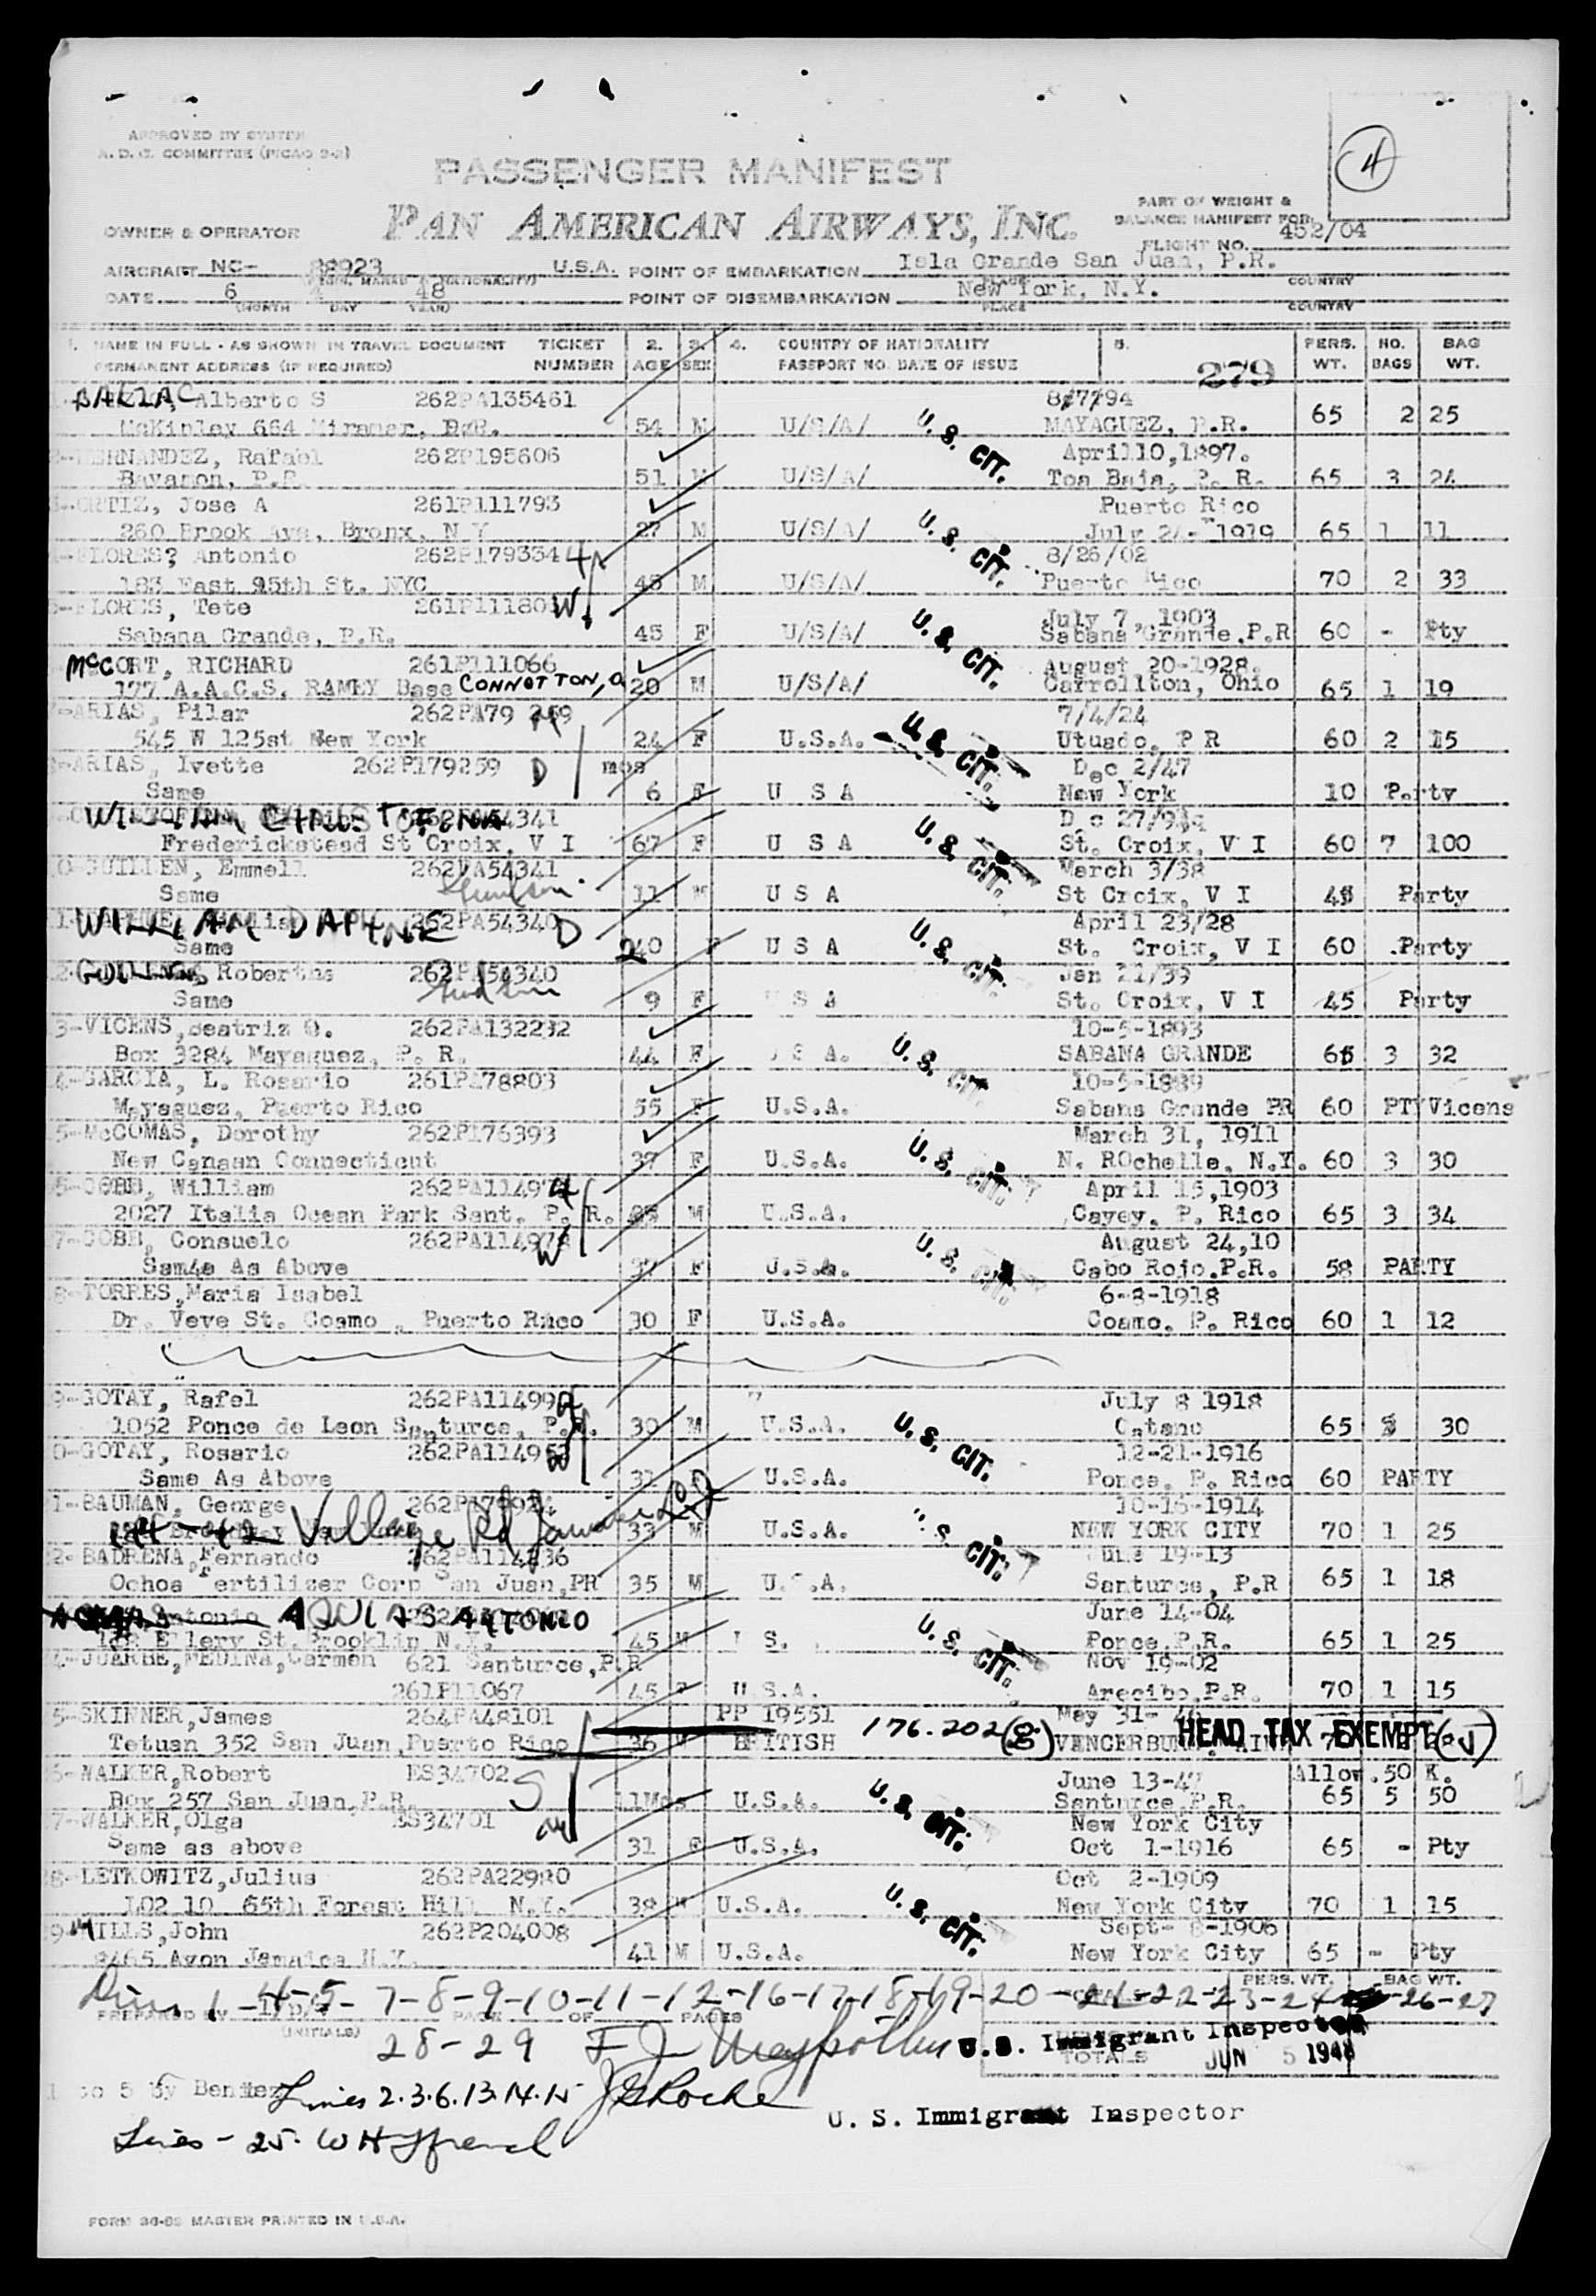 APPROVED BY SYSTEM
A. D. C. COMMITTEE (PICAO 9-2)
4
PASSENGER MANIFEST
PAN AMERICAN AIRWAYS, INC.
PART OF WEIGHT &
BALANCE MANIFEST FOR
OWNER & OPERATOR
FLIGHT NO. 452/04
AIRCRAFT NC- 88923 U.S.A. POINT OF EMBARKATION Isla Grande San Juan, P.R.
PLACE COUNTRY
DATE 6 4 48 POINT OF DISEMBARKATION New York, N.Y.
(MONTH DAY YEAR) PLACE COUNTRY
1. NAME IN FULL - AS SHOWN IN TRAVEL DOCUMENT TICKET 2. 3. 4. COUNTRY OF NATIONALITY 5. PERS. NO. BAG
PERMANENT ADDRESS (IF REQUIRED) NUMBER AGE SEX PASSPORT NO. DATE OF ISSUE 279 WT. BAGS WT.
Alberto S 262PA135461 8/7/94
McKinley 664 Miramar, P.R. 54 M U/S/A/ U. S. CIT. MAYAGUEZ, P.R. 65 2 25
HERNANDEZ, Rafael 262P195606 April10,1897.
Bayamon, P.R. 51 M U/S/A/ Toa Baja, P. R. 65 3 24
ORTIZ, Jose A 261P111793 Puerto Rico
260 Brook Ave, Bronx, N Y 27 M U/S/A/ U. S. CIT. July 24- 1919 65 1 11
FLORES? Antonio 262P179334 H 8/26/02
183 East 95th St. NYC 45 M U/S/A/ Puerto Rico 70 2 33
FLORES, Tete W July 7, 1903
Sabana Grande, P.R. 45 F U/S/A/ U. S. CIT. Sabana Grande,P.R 60 - Pty
McCORT, RICHARD 261P111066 August 20-1928.
177 A.A.C.S. RAMEY Base CONNOTTON, O 20 M U/S/A/ Carrollton, Ohio 65 1 19
ARIAS, Pilar M 7/4/24
545 W 125st New York 24 F U.S.A. U. S. CIT. Utuado, P R 60 2 15
ARIAS, Ivette 262P179259 D mos Dec 2/47
Same 6 F U S A New York 10 Party
WILLIAM CHRISTOFINA Dec 27/
Frederickstead St Croix, V I 67 F U S A U. S. CIT. St. Croix, V I 60 7 100
GUILLEN, Emmell 262PA54341 March 3/38
Same 11 M U S A St Croix, V I 45 Party
WILLIAM DAPHNE 262PA54340 D April 23/28
Same 20 F U S A U. S. CIT. St. Croix, V I 60 .Party
Roberths 262PA54340 Jan 21/39
Same 9 F U S A St. Croix, V I 45 Party
VICENS,Beatriz Q. 262PA132232 10-5-1893
Box 3284 Mayaguez, P. R. 44 F U S A. U. S. CIT. SABANA GRANDE 65 3 32
GARCIA, L. Rosario 261PA78803 10-5-1889
Mayaguez, Puerto Rico 55 F U.S.A. Sabana Grande PR 60 PTY Vicens
McCOMAS, Dorothy 262P176393 March 31, 1911
New Canaan Connecticut 37 F U.S.A. U. S. CIT. N. ROchelle, N.Y. 60 3 30
COBB, William H April 15,1903
2027 Italia Ocean Park Sant. P. R. 45 M U.S.A. Cayey, P. Rico 65 3 34
COBB, Consuelo 262PA114978 W August 24,10
Same As Above 37 F U.S.A. U. S. CIT. Cabo Rojo.P.R. 58 PARTY
TORRES,Maria Isabel 6-8-1918
Dr. Veve St. Coamo , Puerto Rico 30 F U.S.A. Coamo, P. Rico 60 1 12
GOTAY, Rafel H July 8 1918
1052 Ponce de Leon Santurce, P.R. 30 M U.S.A. U. S. CIT. Catano 65 30
GOTAY, Rosario W 12-21-1916
Same As Above 31 U.S.A. Ponce, P. Rico 60 PARTY
BAUMAN, George 10-16-1914
Village Rd Jamaica 33 M U.S.A. U. S. CIT. NEW YORK CITY 70 1 25
BADRENA,Fernando 262PA114236 June 19-13
Ochoa Fertilizer Corp San Juan,PR 35 M U.S.A. Santurce, P.R 65 1 18
ANTONIO June 14-04
Ellery St. Brooklin N.Y. 45 M U S. U. S. CIT. Ponce,P.R. 65 1 25
JUARBE,MEDINA,Carmen 621 Santurce,P.R Nov 19-02
261P11067 45 F U.S.A. Arecibo,P.R. 70 1 15
SKINNER,James 264PA48101 PP 19551 May 31-
Tetuan 352 San Juan,Puerto Rico 36 M BRITISH 176.202(g) HEAD TAX EXEMPT
WALKER,Robert ES34702 S June 13-47 Allow.50 K.
Box 257 San Juan,P.R. 11Mos U.S.A. U. S. CIT. Santurce,P.R. 65 5 50
WALKER,Olga ES34701 New York City
Same as above 31 F U.S.A. Oct 1-1916 65 - Pty
LETKOWITZ,Julius 262PA22980 Oct 2-1909
102 10 65th Forest Hill N.Y. 38 M U.S.A. U. S. CIT. New York City 70 1 15
MILLS,John 262P204008 Sept- 8-1906
Avon Jamaica N.Y. 41 M U.S.A. New York City 65 - Pty
1-4-5-7-8-9-10-11-12-16-17-18-19-20-21-22-23-24-26-27
PREPARED BY (INITIALS) PAGE OF PAGES PERS. WT. BAG WT.
28-29 F J
U.S. Immigrant Inspector
TOTALS JUN 5 1948
to 5 by Benitez Lines 2.3.6.13.14.15 Roche
U. S. Immigrant Inspector
Lines - 25. W H
FORM 36-02 MASTER PRINTED IN U.S.A.